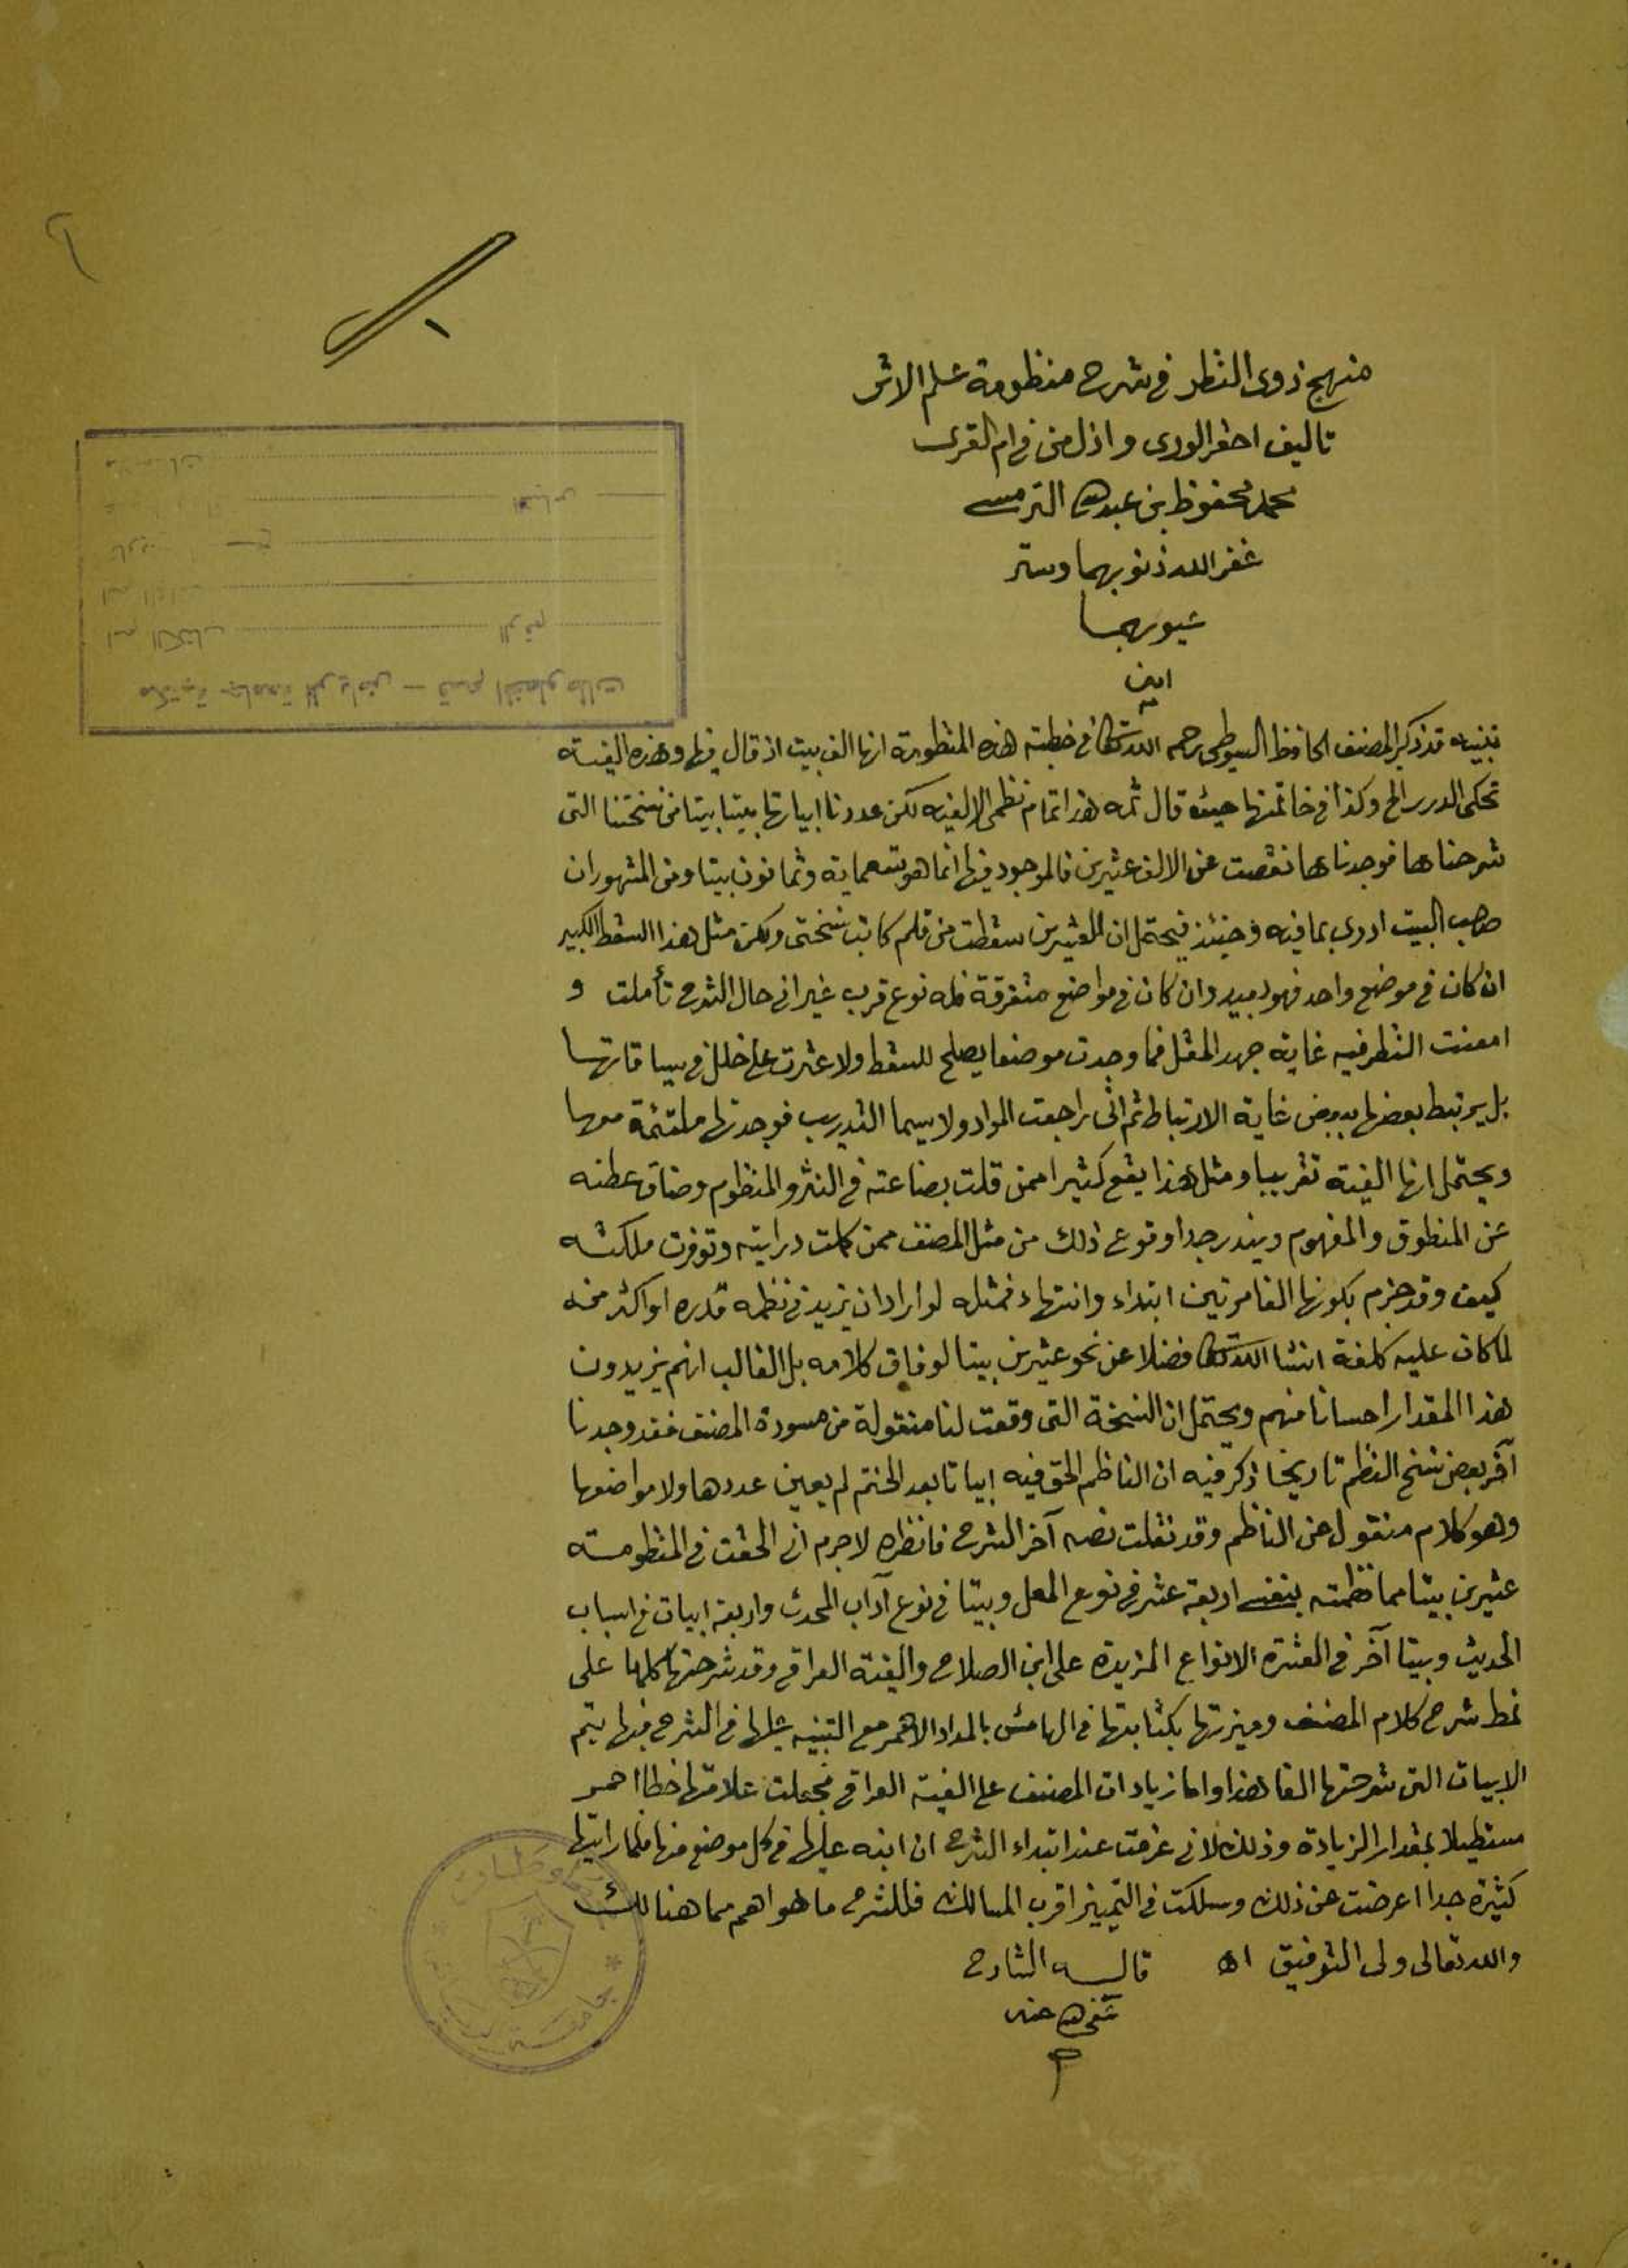 منهج ذوى النظر فى شرح منظومة علم الاثر
تاليف احقر الورى واذل من فى ام القرى
محمد محفوظ بن عبد الله الترمسى
غفر الله ذنوبهما وستر
عيوبهما
امين
تنبيه قد ذكر المصنف الحافظ السيوطى رحمه الله تعالى فى خطبته هذه المنظومة انها الف بيت اذ قال فيها وهذه الفية
تحكى الدرر الخ وكذا فى خاتمتها حيث قال ثمه هذا تمام نظمى الالفية لكن عددنا ابياتها بيتا بيتا من نسختنا التى
شرحناها فوجدناها نقصت عن الالف عشرين فالموجود فيها انما هو تسعماية وثمانون بيتا ومن المشهور ان
صاحب البيت ادرى بما فيه وحينئذ فيحتمل ان العشرين سقطت من قلم كاتب نسختى ولكن مثل هذا السقط الكبير
ان كان فى موضع واحد فهو بعيد وان كان فى مواضع متفرقة فله نوع قرب غير انى حال الشرح تأملت و
امعنت النظر فيه غاية جهد المقل فما وجدت موضعا يصلح للسقط ولا عثرت على خلل فى سياقاتها
بل يرتبط بعضها ببعض غاية الارتباط ثم انى راجعت المواد ولا سيما التدريب فوجدتها ملتئمة معها
ويحتمل انها الفية تقريبا ومثل هذا يقع كثيرا ممن قلت بضاعته فى النثر والمنظوم وضاق عطنه
عن المنطوق والمفهوم ويندر جدا وقوع ذلك من مثل المصنف ممن كملت درايته وتوفرت ملكته
كيف وقد جزم بكونها الفا مرتين ابتداء وانتهاء فمثله لو اراد ان يزيد فى نظمه قدره او اكثر منه
لما كان عليه كلفة ان شا الله تعالى فضلا عن نحو عشرين بيتا لوفاق كلامه بل الغالب انهم يزيدون
هذا المقدار احسانا منهم ويحتمل ان النسخة التى وقعت لنا منقولة من مسودة المصنف فقد وجدنا
آخر بعض نسخ النظم تاريخا ذكر فيه ان الناظم الحق فيه ابياتا بعد الختم لم يعين عددها ولا مواضعها
وهو كلام منقول عن الناظم وقد نقلت نصه آخر الشرح فانظره لاجرم انى الحقت فى المنظومة
عشرين بيتا مما نظمته بنفسى اربعة عشر فى نوع المعل وبيتا فى نوع آداب المحدث واربعة ابيات فى اسباب
الحديث وبيتا آخر فى العشرة الانواع المزيدة على ابن الصلاح والفية العراقى وقد شرحتها كلها على
نمط شرح كلام المصنف وميزتها بكتابتها فى الهامش بالمداد الاحمر مع التنبيه عليها فى الشرح فبها يتم
الابيات التى شرحتها الفا هذا واما زيادات المصنف على الفية العراقى فجعلت علامتها خطا احمر
مستطيلا بمقدار الزيادة وذلك لانى عزمت عند ابتداء الشرح ان انبه عليها فى كل موضع منها فلما رايتها
كثيرة جدا اعرضت عن ذلك وسلكت فى التمييز اقرب المسالك فللشرح ما هو اهم مما هنالك
والله تعالى ولى التوفيق اه قاله الشارح
عفى الله عنه
م
مكتبة جامعة الرياض – قسم المخطوطات
اسم الكتاب الرقم